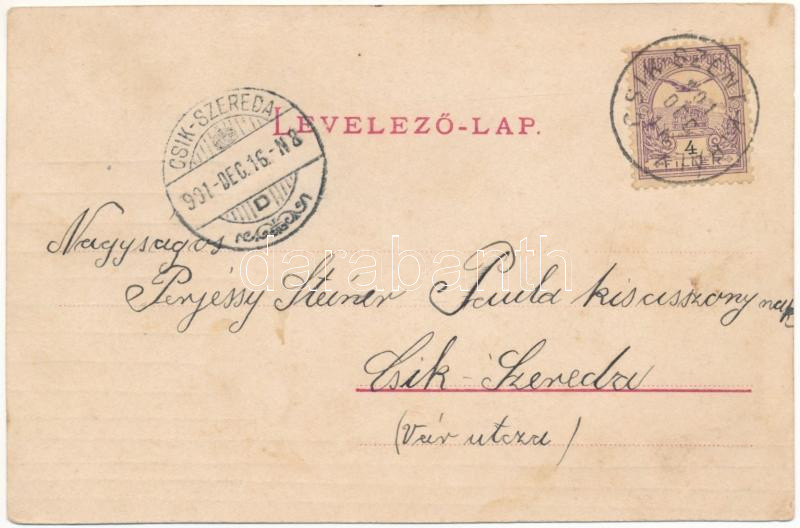 LEVELEZŐ-LAP.
CSIK-SZEREDA
901-DEC.16.-N8
D
CSIK SZENT
901
MAGYAR KIR. POSTA
4
FILLÉR
Nagyságos
Perjéssy Steiner Paula kisasszonynak
Csik-Szereda
(Vár utcza)
darabanth